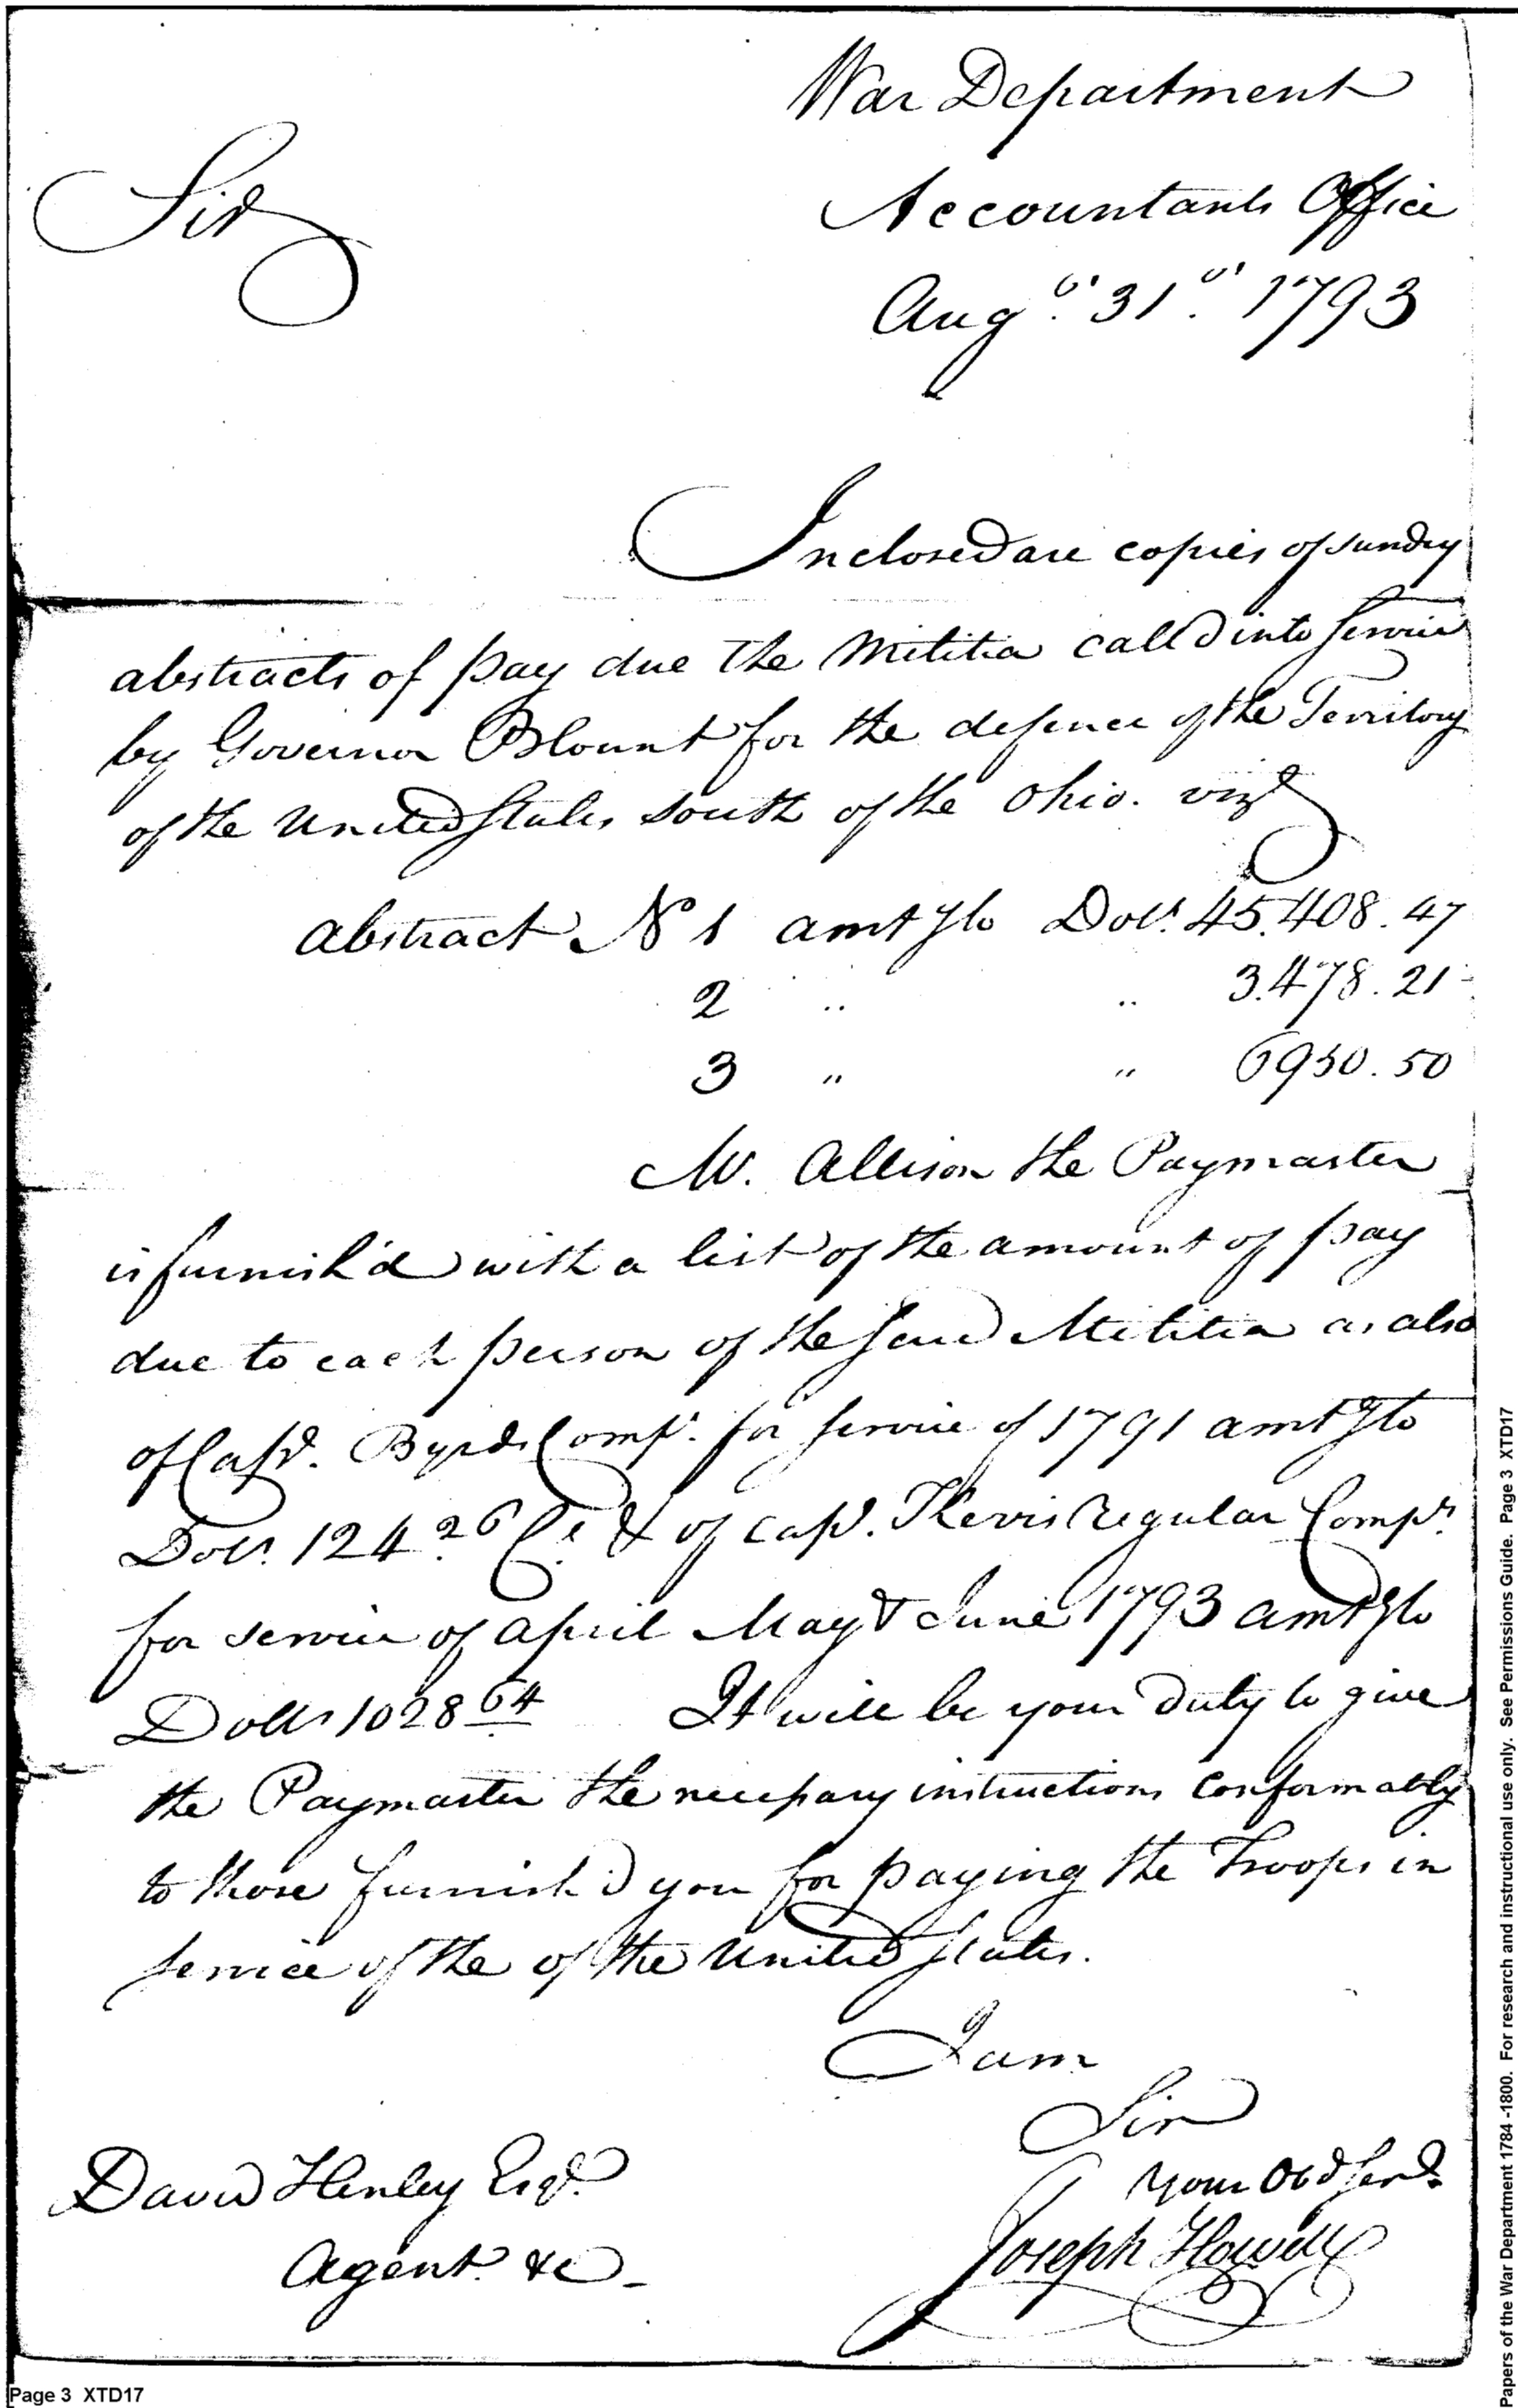 War Department
Sir
Accountants Office
Augt. 31st. 1793
Inclosed are copies of sundry
abstracts of pay due the Militia call'd into Service
by Governor Blount for the defence of the Territory
of the United States South of the Ohio. vizt
abstract No 1 amtg to Dolls. 45.408.47
2 .. .. 3.478.21
3 " " 6950.50
Mr. Allison the Paymaster
is furnish'd with a list of the amount of pay
due to each person of the said Militia as also
of Capt. Byrds Compy. for service of 1791 amtg to
Dolls. 124.26 Cs. & of Capt. Regular Compy.
for service of April May & June 1793 amtg to
Dolls 1028 64 It will be your duty to give
the Paymaster the necessary instructions conformably
to those furnish'd you for paying the Troops in
service of the of the United States.
I am
Sir
your Obd Servt.
Joseph Howell
David Henley Esqr.
Agent &c
Page 3 XTD17
Papers of the War Department 1784-1800. For research and instructional use only. See Permissions Guide. Page 3 XTD17